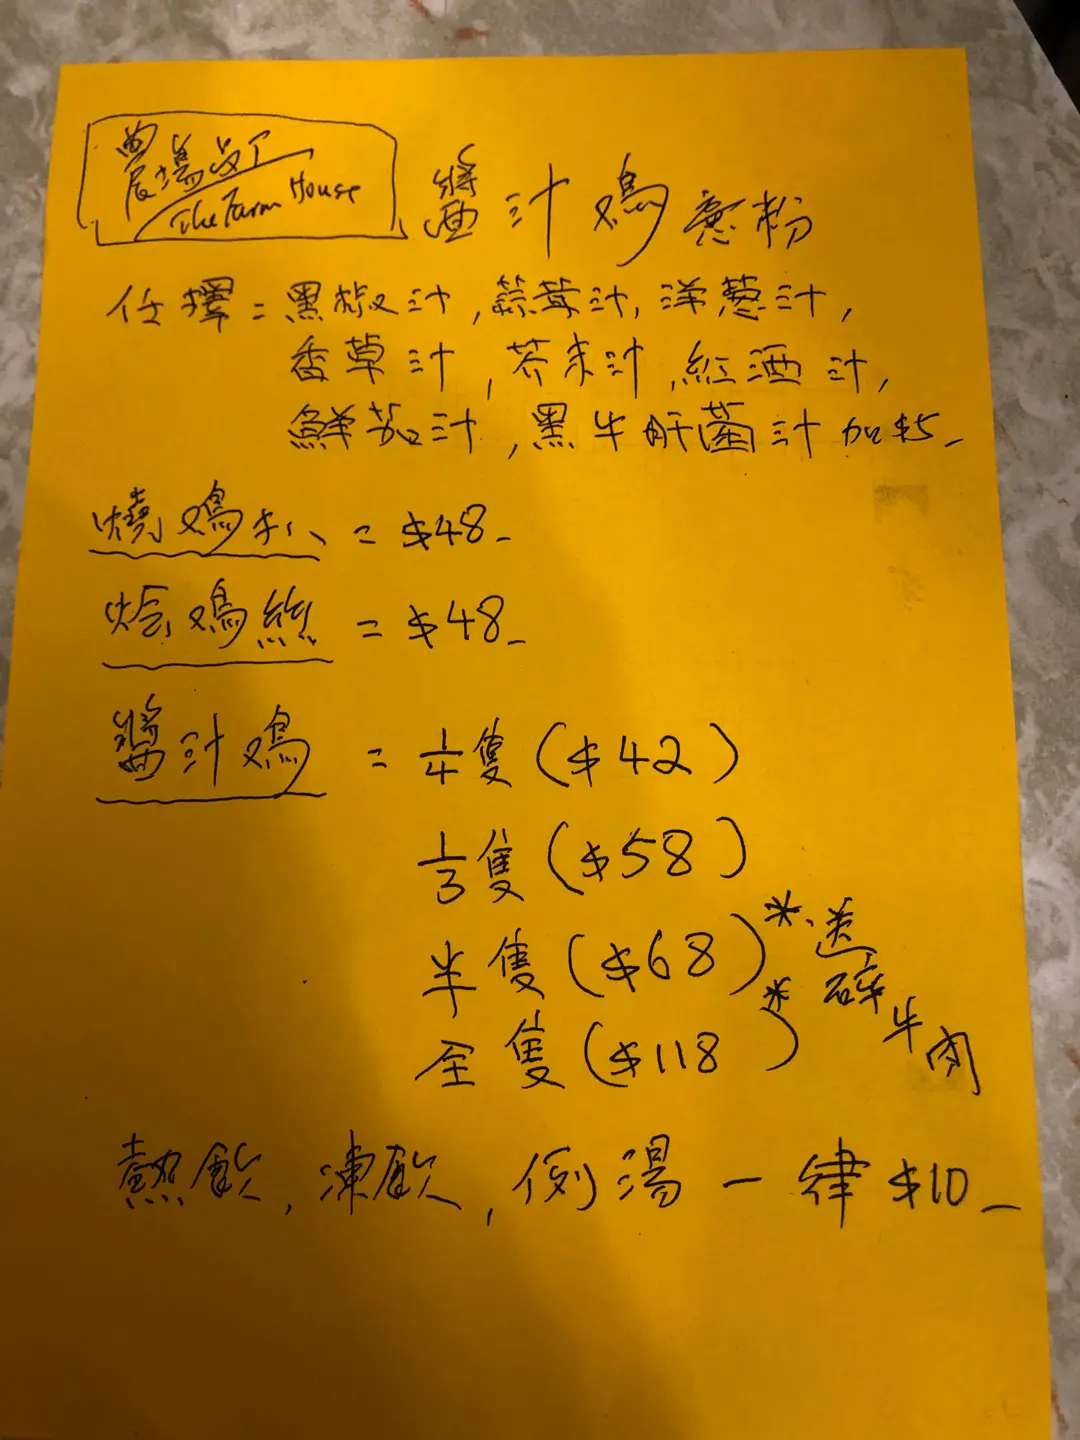 農場
The Farm House
醬汁鷄意粉
任擇=黑椒汁,蒜茸汁,洋葱汁,
香草汁,芥末汁,紅酒汁,
鮮茄汁,黑牛肝菌汁加$5_
燒鷄扒=$48_
烩鷄絲=$48_
醬汁鷄=1/4隻($42)
1/3隻($58)
半隻($68)*送碎牛肉
全隻($118)*
熱飲,凍飲,例湯一律$10_